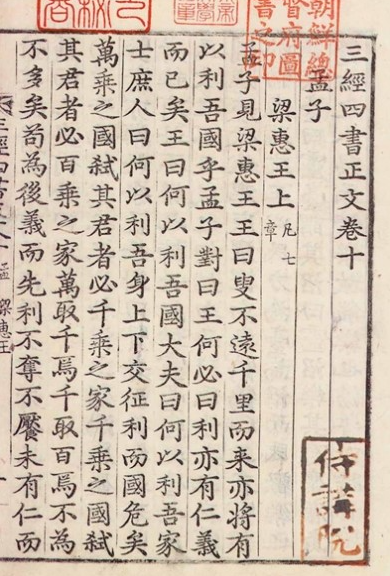 三經四書正文卷十
孟子
梁惠王上 凡七章
孟子見梁惠王王曰叟不遠千里而来亦将有
以利吾國乎孟子對曰王何必曰利亦有仁義
而已矣王曰何以利吾國大夫曰何以利吾家
士庶人曰何以利吾身上下交征利而國危矣
萬乘之國弑其君者必千乘之家千乘之國弑
其君者必百乘之家萬取千焉千取百焉不為
不多矣苟為後義而先利不奪不饜未有仁而
三經四書 孟 梁惠王
朝鮮總督府圖書之印
侍講院